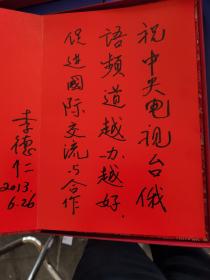 祝中央电视台俄
语频道越办越好，
促进国际交流与合作
李德仁
2013.
6.26.